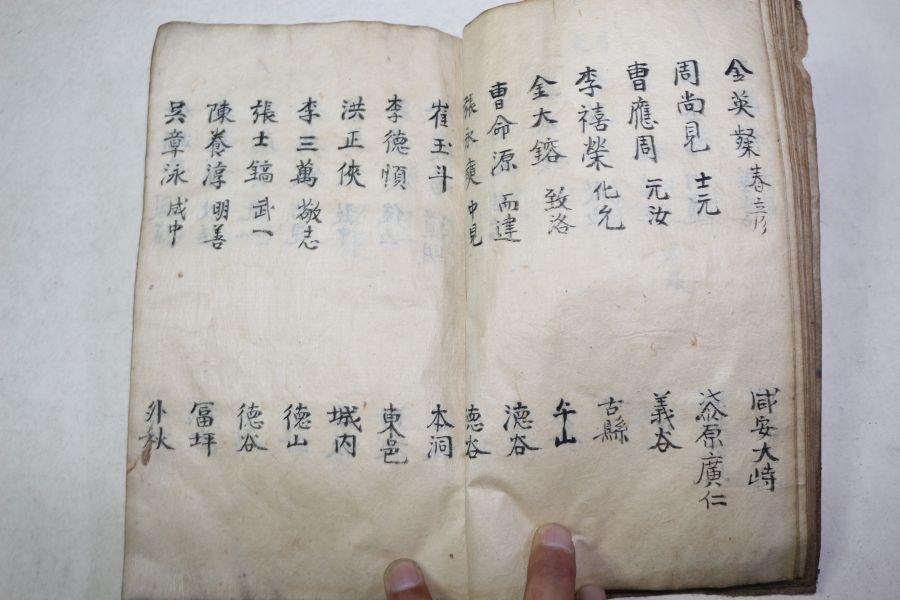 金英粲 春彦 咸安大峙
周尚見 士元 漆原廣仁
曹應周 元汝 義谷
李禧榮 化允 古縣
金大鎔 致洛 午山
曹命源 而達 德谷
張永奭 中見 德谷
崔玉斗 本洞
李德愼 東邑
洪正俠 城内
李三萬 敬志 德山
張士鎬 武一 德谷
陳養淳 明善 冨坪
吳章泳 成中 外秋